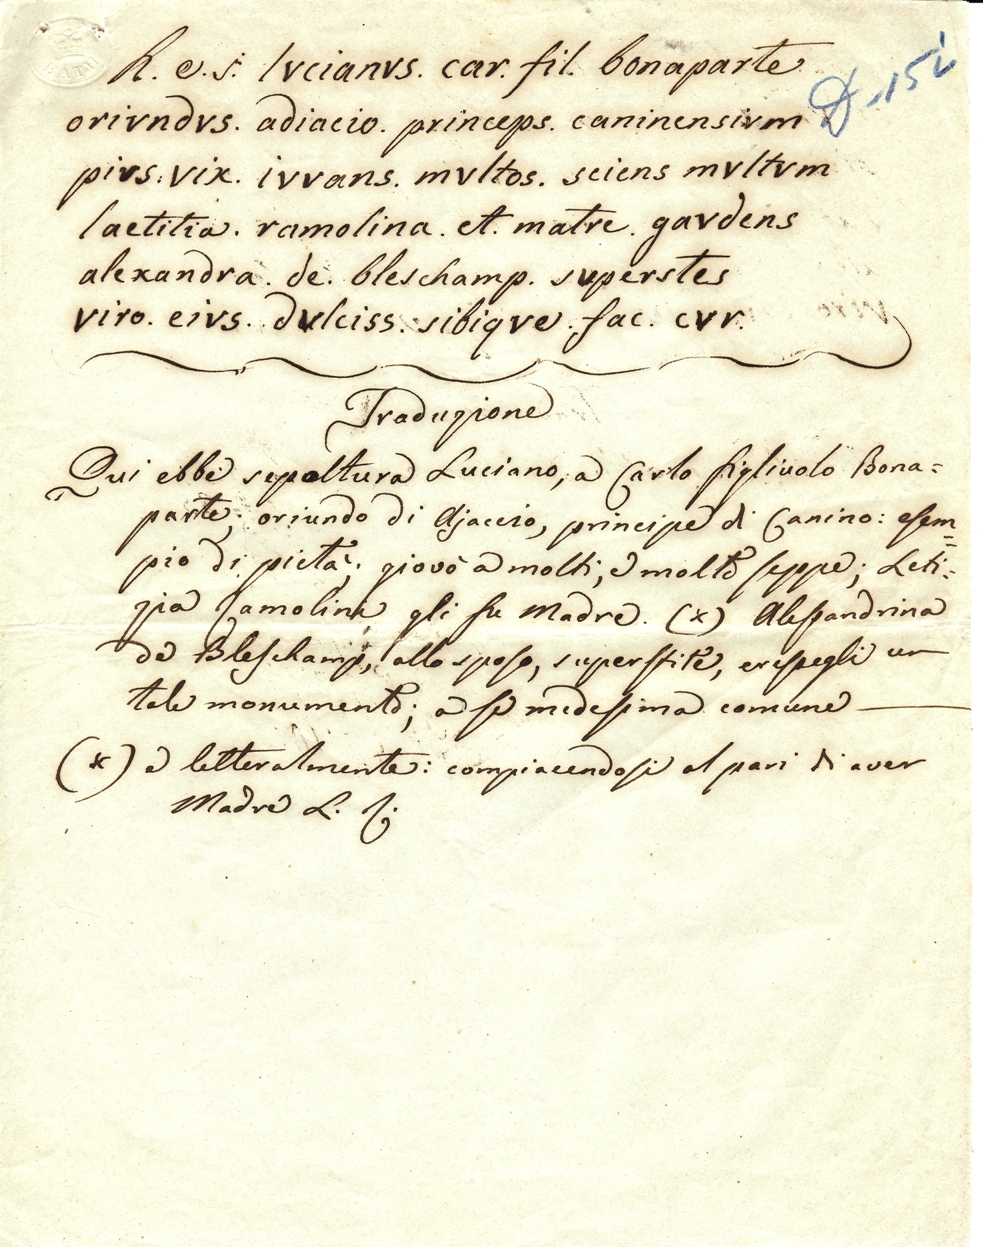 h. e. s. lvcianvs. car. fil. bonaparte
D. 15
orivndvs. adiacio. princeps. caninensivm
pivs. vix. ivvans. mvltos. sciens mvltvm
laetitia. ramolina. et. matre. gavdens
alexandra. de. bleschamp. svperstes
viro. eivs. dvlciss. sibiqve. fac. cvr.
Traduzione
Qui ebbe sepoltura Luciano, a Carlo figliuolo Bona=
parte, oriundo di Ajaccio, principe di Canino: esem=
pio di pietà; giovò a molti, e molto seppe; Leti=
zia Ramolini gli fu Madre. (x) Alessandrina
de Bleschamp, allo sposo, superstite, eressegli un
tale monumento; a se medesima comune
(x) e letteralmente: compiacendosi al pari di aver
Madre L. R.